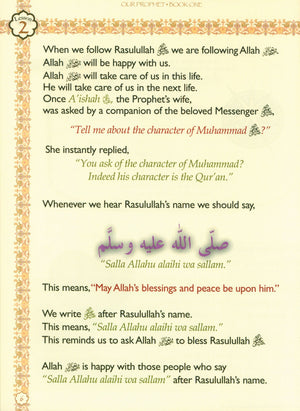 OUR PROPHET • BOOK ONE
Lesson
2
When we follow Rasulullah ﷺ we are following Allah
Allah will be happy with us.
Allah will take care of us in this life.
He will take care of us in the next life.
Once A'ishah, the Prophet's wife,
was asked by a companion of the beloved Messenger ﷺ,
"Tell me about the character of Muhammad ﷺ?"
She instantly replied,
"You ask of the character of Muhammad?
Indeed his character is the Qur'an."
Whenever we hear Rasulullah's name we should say,
صلّى الله عليه وسلّم
"Salla Allahu alaihi wa sallam."
This means, "May Allah's blessings and peace be upon him."
We write ﷺ after Rasulullah's name.
This means, "Salla Allahu alaihi wa sallam."
This reminds us to ask Allah to bless Rasulullah ﷺ
Allah is happy with those people who say
"Salla Allahu alaihi wa sallam" after Rasulullah's name.